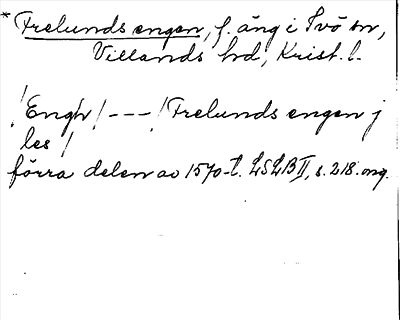 * Frelunds engen, f. äng i Ivö sn,
Villands hd, Krist. l.
/Engh/ --- /Frelunds engen j
les/
förra delen av 1570-t. LSLB II, s. 218. omg.